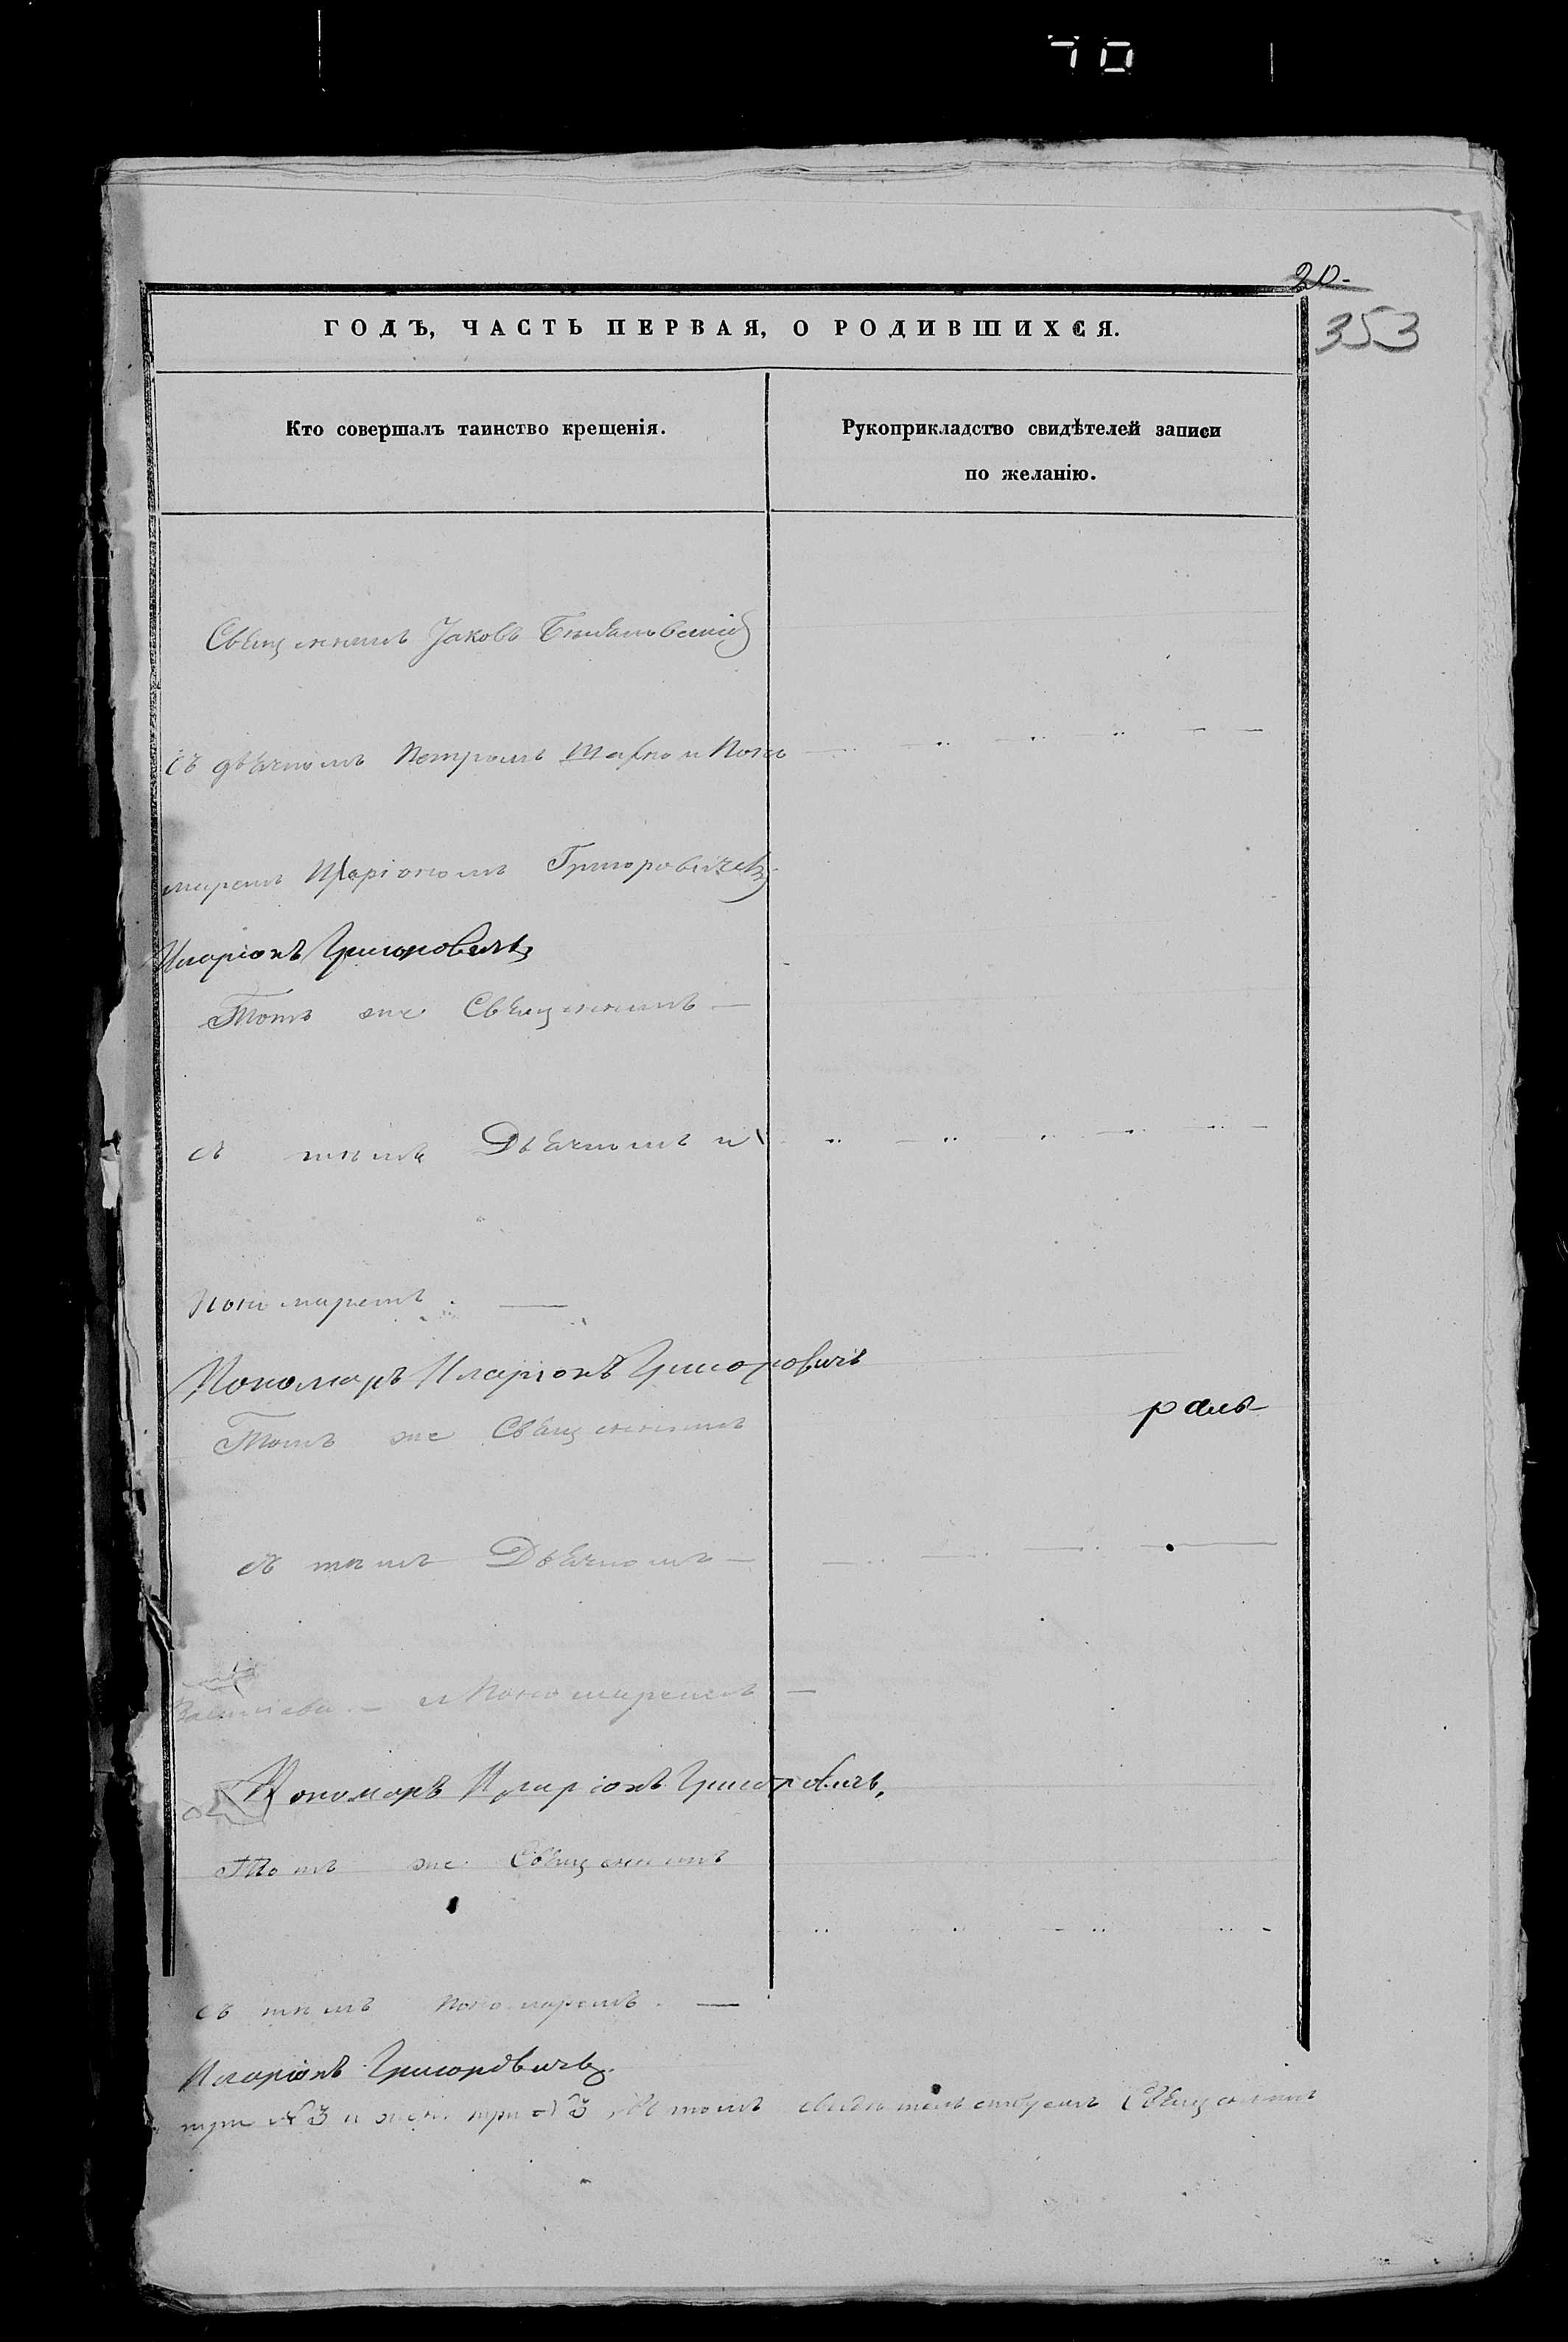 70
20.
353
ГОДЪ, ЧАСТЬ ПЕРВАЯ, О РОДИВШИХСЯ.
Кто совершалъ таинство крещенія.
Рукоприкладство свидѣтелей записи
по желанію.
Священникъ Іаковъ
съ дьячкомъ Петромъ и Поно
маремъ Иларіономъ Григоровичемъ
Иларіонъ Григоровичъ
Тотъ же Священникъ —
съ тѣмъ Дьячкомъ и
Пономаремъ. —
Пономарь Иларіонъ Григоровичъ
Тотъ же Священникъ
съ тѣмъ Дьячкомъ —
и Пономаремъ —
Пономарь Иларіонъ Григоровичъ.
Тотъ же Священникъ
съ тѣмъ пономаремъ. —
Иларіонъ Григоровичъ.
три № 3 и жен. три № 3, въ томъ свидѣтельствуемъ Священникъ